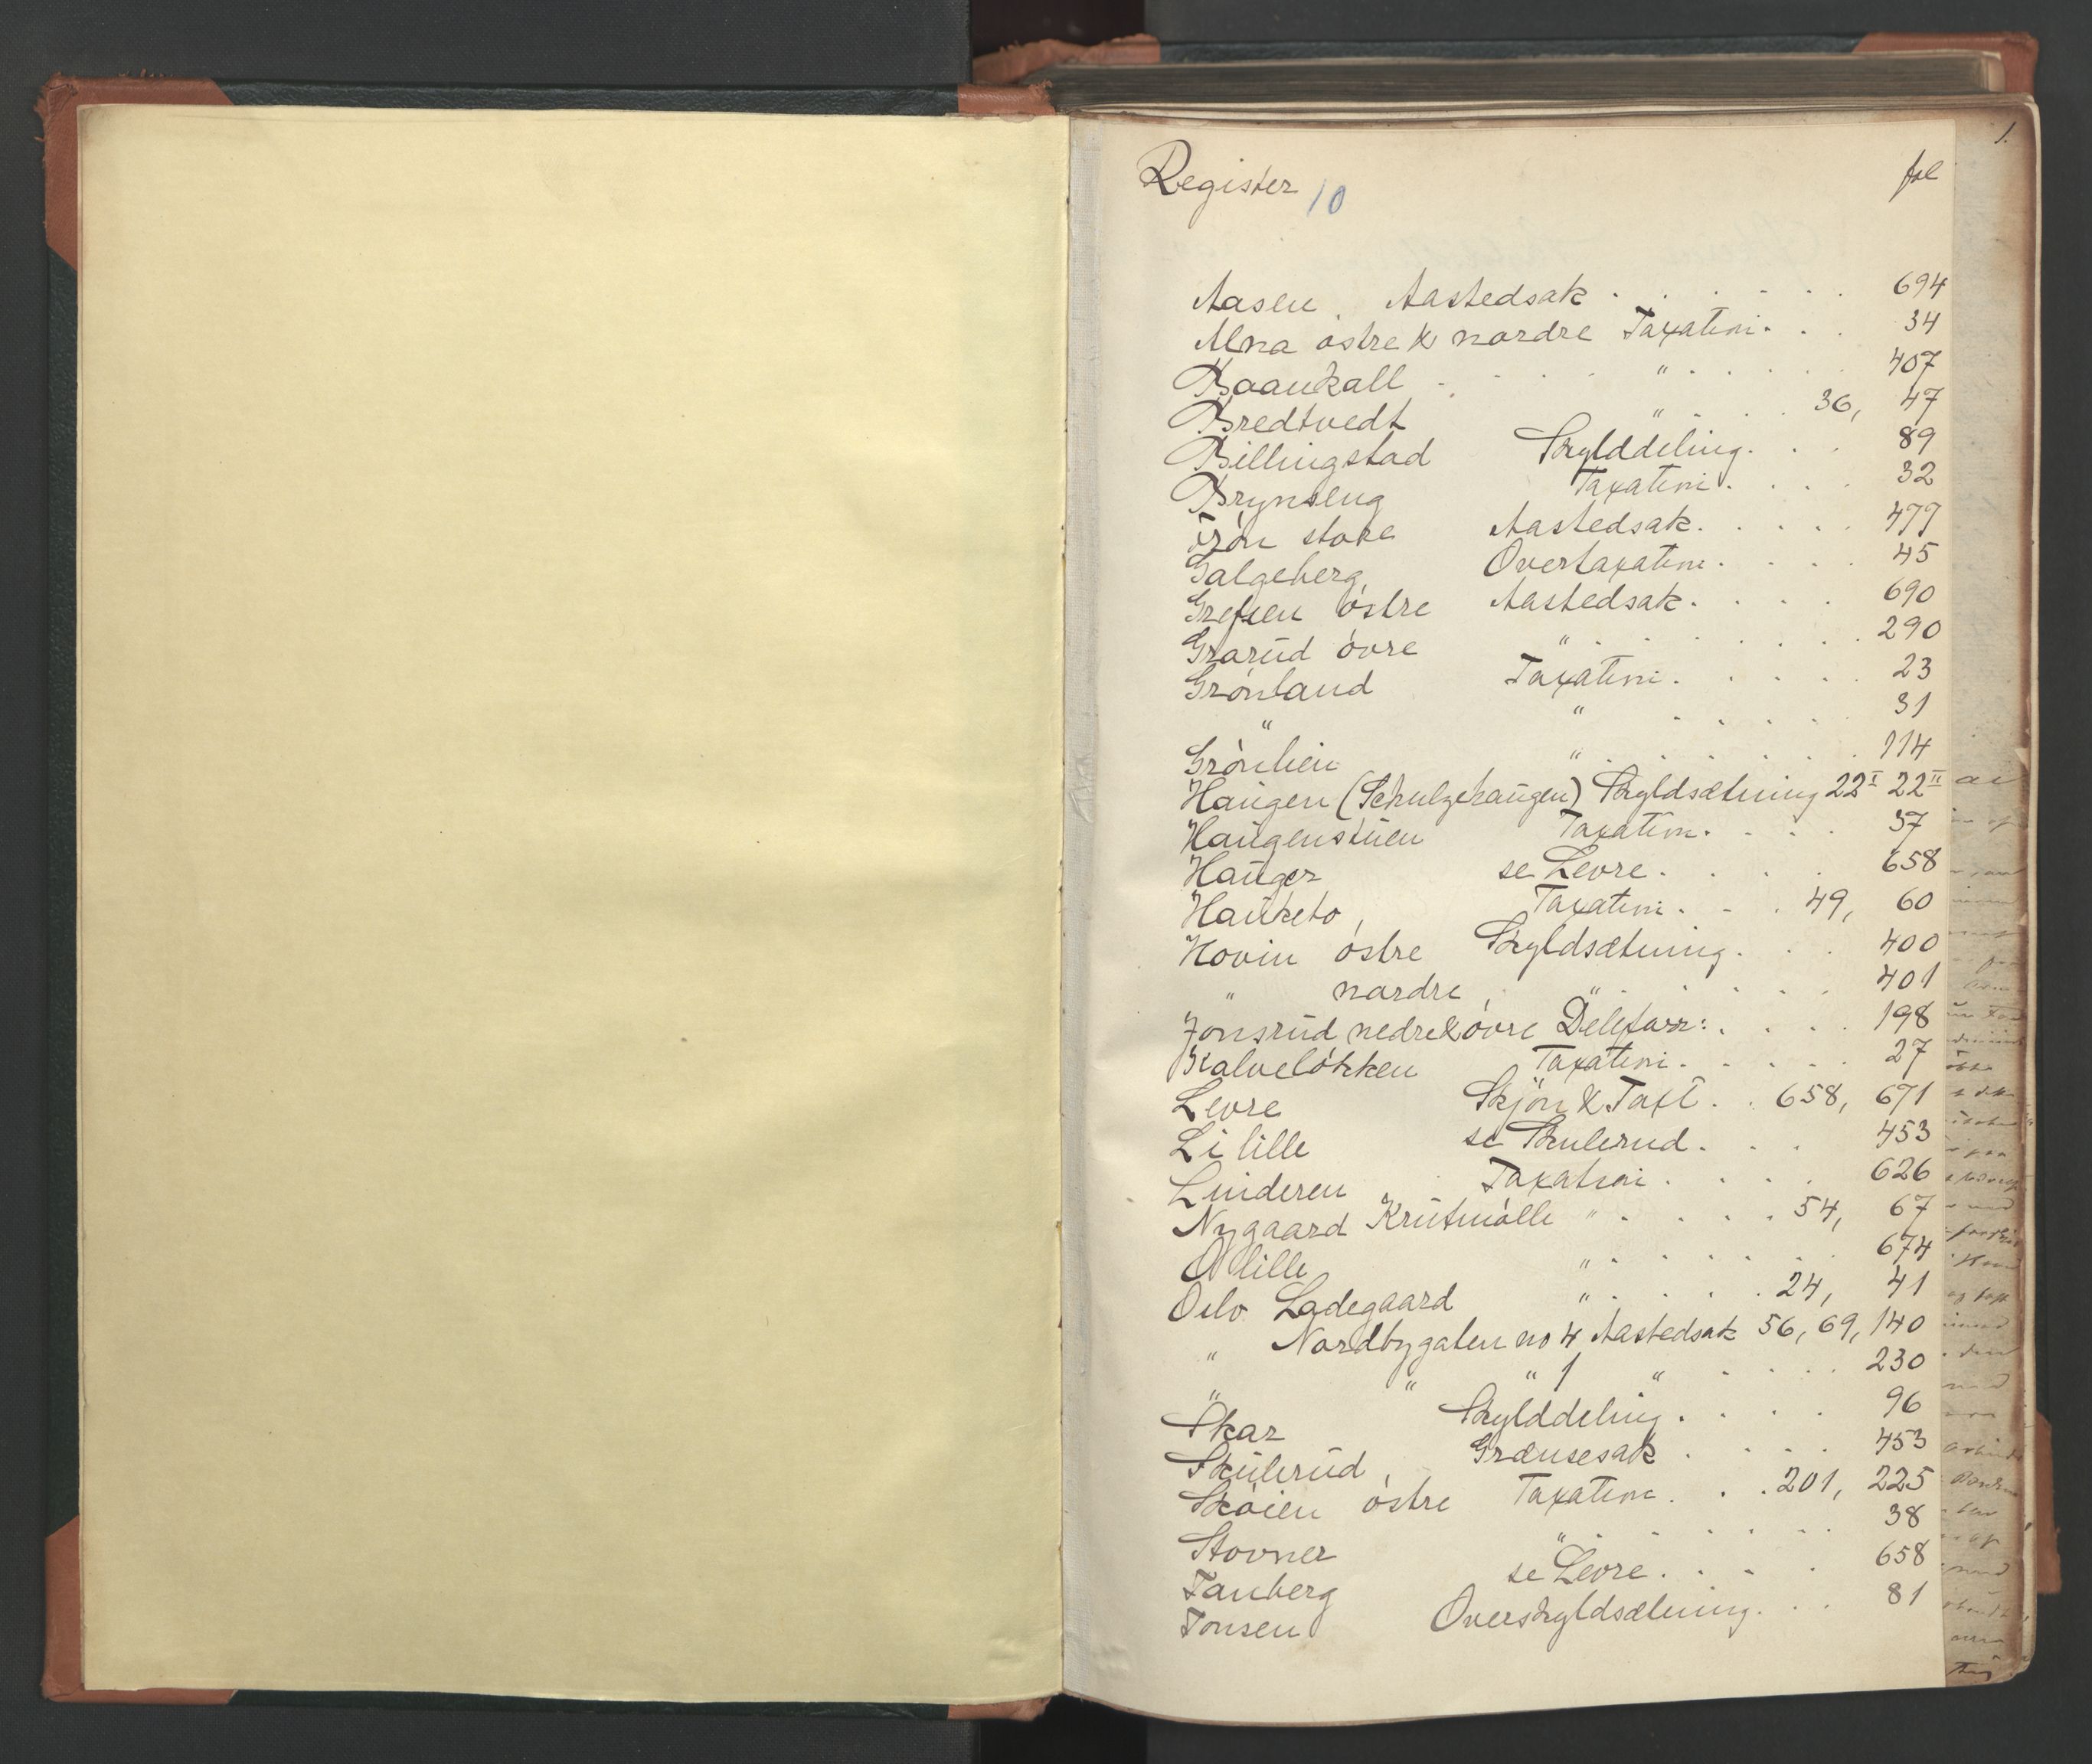 1.
Register 10 fol
Aasen, Aastedsak . . . . . . 694
Alna østre & nordre Taxation . . . 34
Baankall . . . . . " . . . . . 407
Bredtvedt " . . . . 36, 47
Billingstad Skylddeling . . . 89
Brynseng Taxation . . . . 32
Frøn store Aastedsak . . . . . 477
Galgeberg, Overtaxation . . . . 45
Grefsen østre Aastedsak . . . . 690
Grorud øvre " . . . . . . . 290
Grønland Taxation . . . . . 23
" " . . . . 31
Grønlien " . . . . . . . 114
Haugen (Schulzehaugen) Skyldsætning 22I 22II
Haugenstuen Taxation . . . . 37
Hauger se Levre . . . . . 658
Hauketo, Taxation . . . 49, 60
Hovin østre Skyldsætning . . . 400
" nordre, " . . . . . . 401
Jonsrud nedre & øvre Deleforr: . . . . 198
Kalveløkken Taxation . . . . . 27
Levre Skjøn & Taxt . . 658, 671
Li lille se Skulerud . . . 453
Linderen Taxation . . . . 626
Nygaard Krutmølle " . . . . . 54, 67
O lille " . . . . . . . 674
Oslo Ladegaard " . . . . . 24, 41
" Nordbygaten no 4 Aastedsak 56, 69, 140
" " " 1 " . . . . 230
Skar Skylddeling . . . . 96
Skulerud, Grænsesak . . . . 453
Skøien østre Taxation . . . 201, 225
Stovner " . . . . . . . 38
Tanberg se Levre . . . . 658
Tonsen Overskyldsætning . . . 81